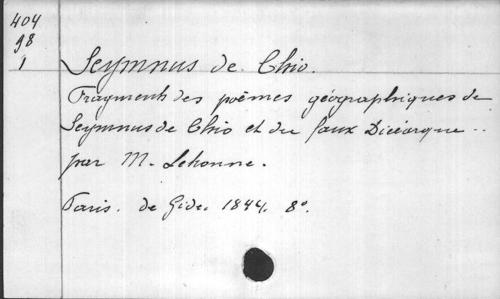 404
98
1
Scymnus de Chio.
Fragments des poëmes géographiques de
Scymnus de Chio et du faux Dicéarque ..
par M. Letronne.
Paris. de Gide. 1844. 8°.